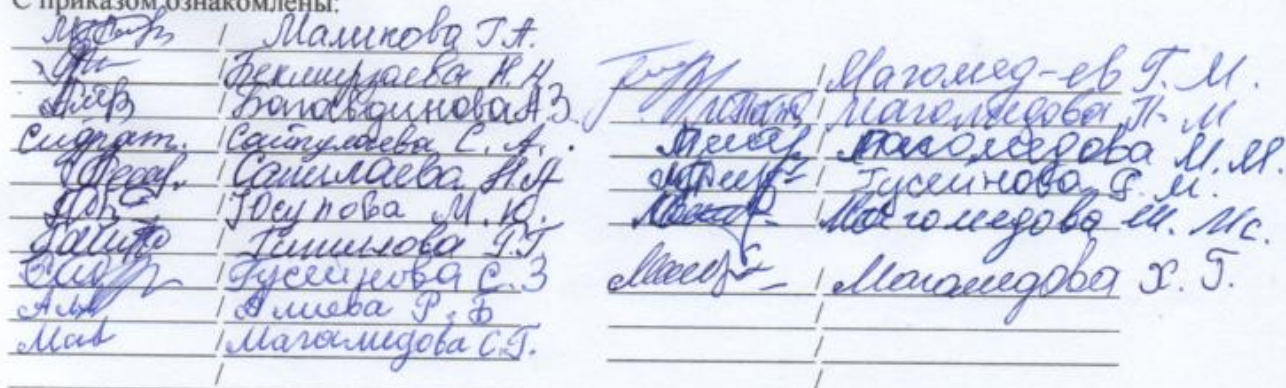 С приказом ознакомлены:
/ Маликова Т.А.
/ Бекмурзаева Н.И
/ Багавдинова А.З.
Сидрат. / Сайпулаева С. А.
/ Сатилаева Н.А
/ Юсупова М.Ю.
/ Г.Г
/ Гусейнова С.З
/ Алиева Р.Б
Маг / Магамедова С.Г.
/
/ Магомед-ев Г.М.
/ Магомедова П.М
/ Магомедова М.М.
/ Гусейнова Г.М.
/ Магомедова М.Мс.
/ Магамедова Х.Г.
/
/
/